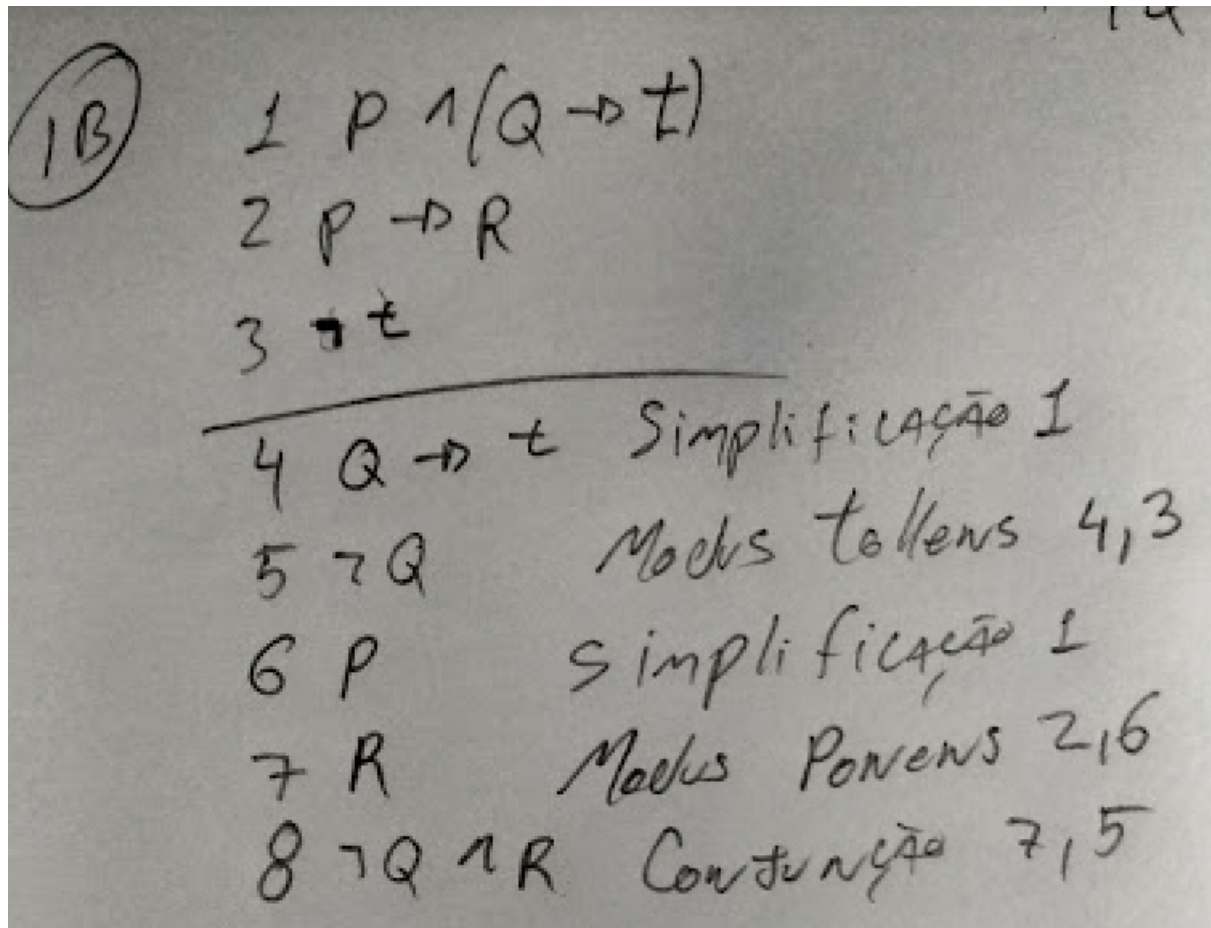 1B
1 P ∧ (Q → t)
2 P → R
3 ¬ t
4 Q → t Simplificação 1
5 ¬Q Modus tollens 4,3
6 P simplificação 1
7 R Modus Ponens 2,6
8 ¬Q ∧ R Conjunção 7,5